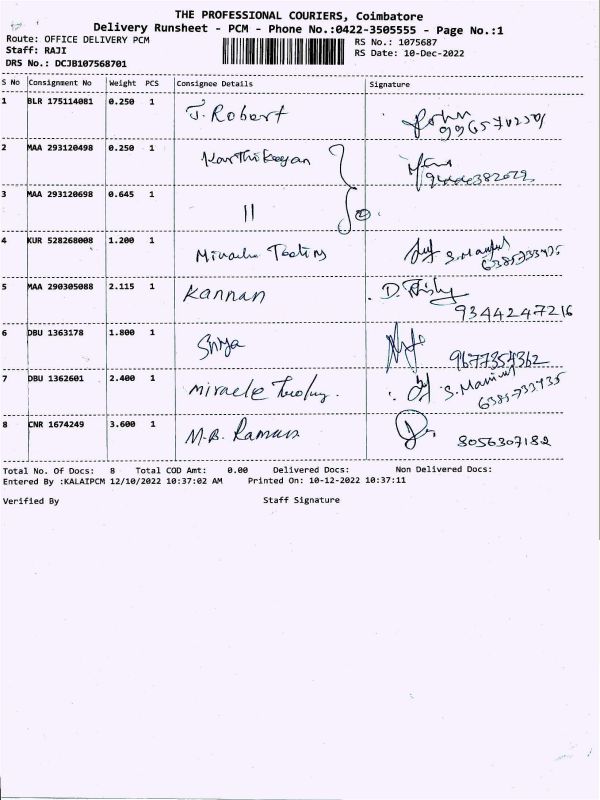 THE PROFESSIONAL COURIERS, Coimbatore
Delivery Runsheet - PCM - Phone No.:0422-3505555 - Page No.:1
Route: OFFICE DELIVERY PCM
RS No.: 1075687
Staff: RAJI
RS Date: 10-Dec-2022
DRS No.: DCJB107568701
S No Consignment No Weight PCS Consignee Details Signature
1 BLR 175114081 0.250 1 J. Robert John
2 MAA 293120498 0.250 1 Karthikeyan
3 MAA 293120698 0.645 1 11
4 KUR 528268008 1.200 1 Miracle 6385733435
5 MAA 290305088 2.115 1 Kannan D.
9344247216
6 DBU 1363178 1.800 1 9677354362
7 DBU 1362601 2.400 1 miracle S. 6385733435
8 CNR 1674249 3.600 1 M.B. Raman 8056307182
Total No. Of Docs: 8 Total COD Amt: 0.00 Delivered Docs: Non Delivered Docs:
Entered By :KALAIPCM 12/10/2022 10:37:02 AM Printed On: 10-12-2022 10:37:11
Verified By Staff Signature